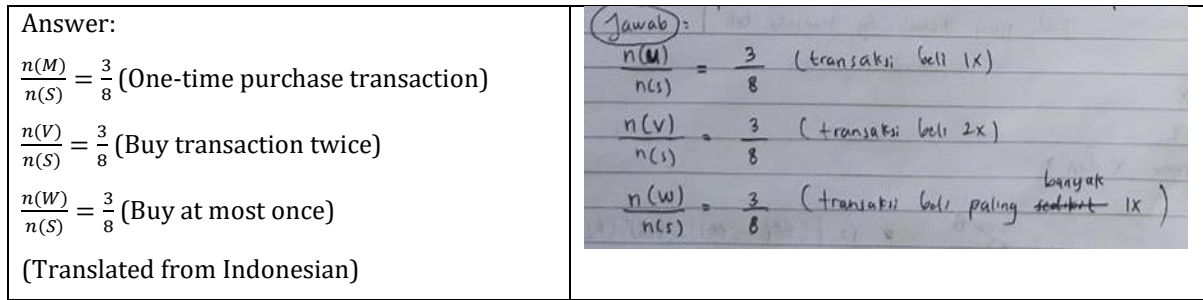 Answer:
n(M)/n(S) = 3/8 (One-time purchase transaction)
n(V)/n(S) = 3/8 (Buy transaction twice)
n(W)/n(S) = 3/8 (Buy at most once)
(Translated from Indonesian)
Jawab :
n(M)/n(s) = 3/8 (transaksi beli 1x)
n(v)/n(s) = 3/8 (transaksi beli 2x)
banyak
n(w)/n(s) = 3/8 (transaksi beli paling sedikit 1x)